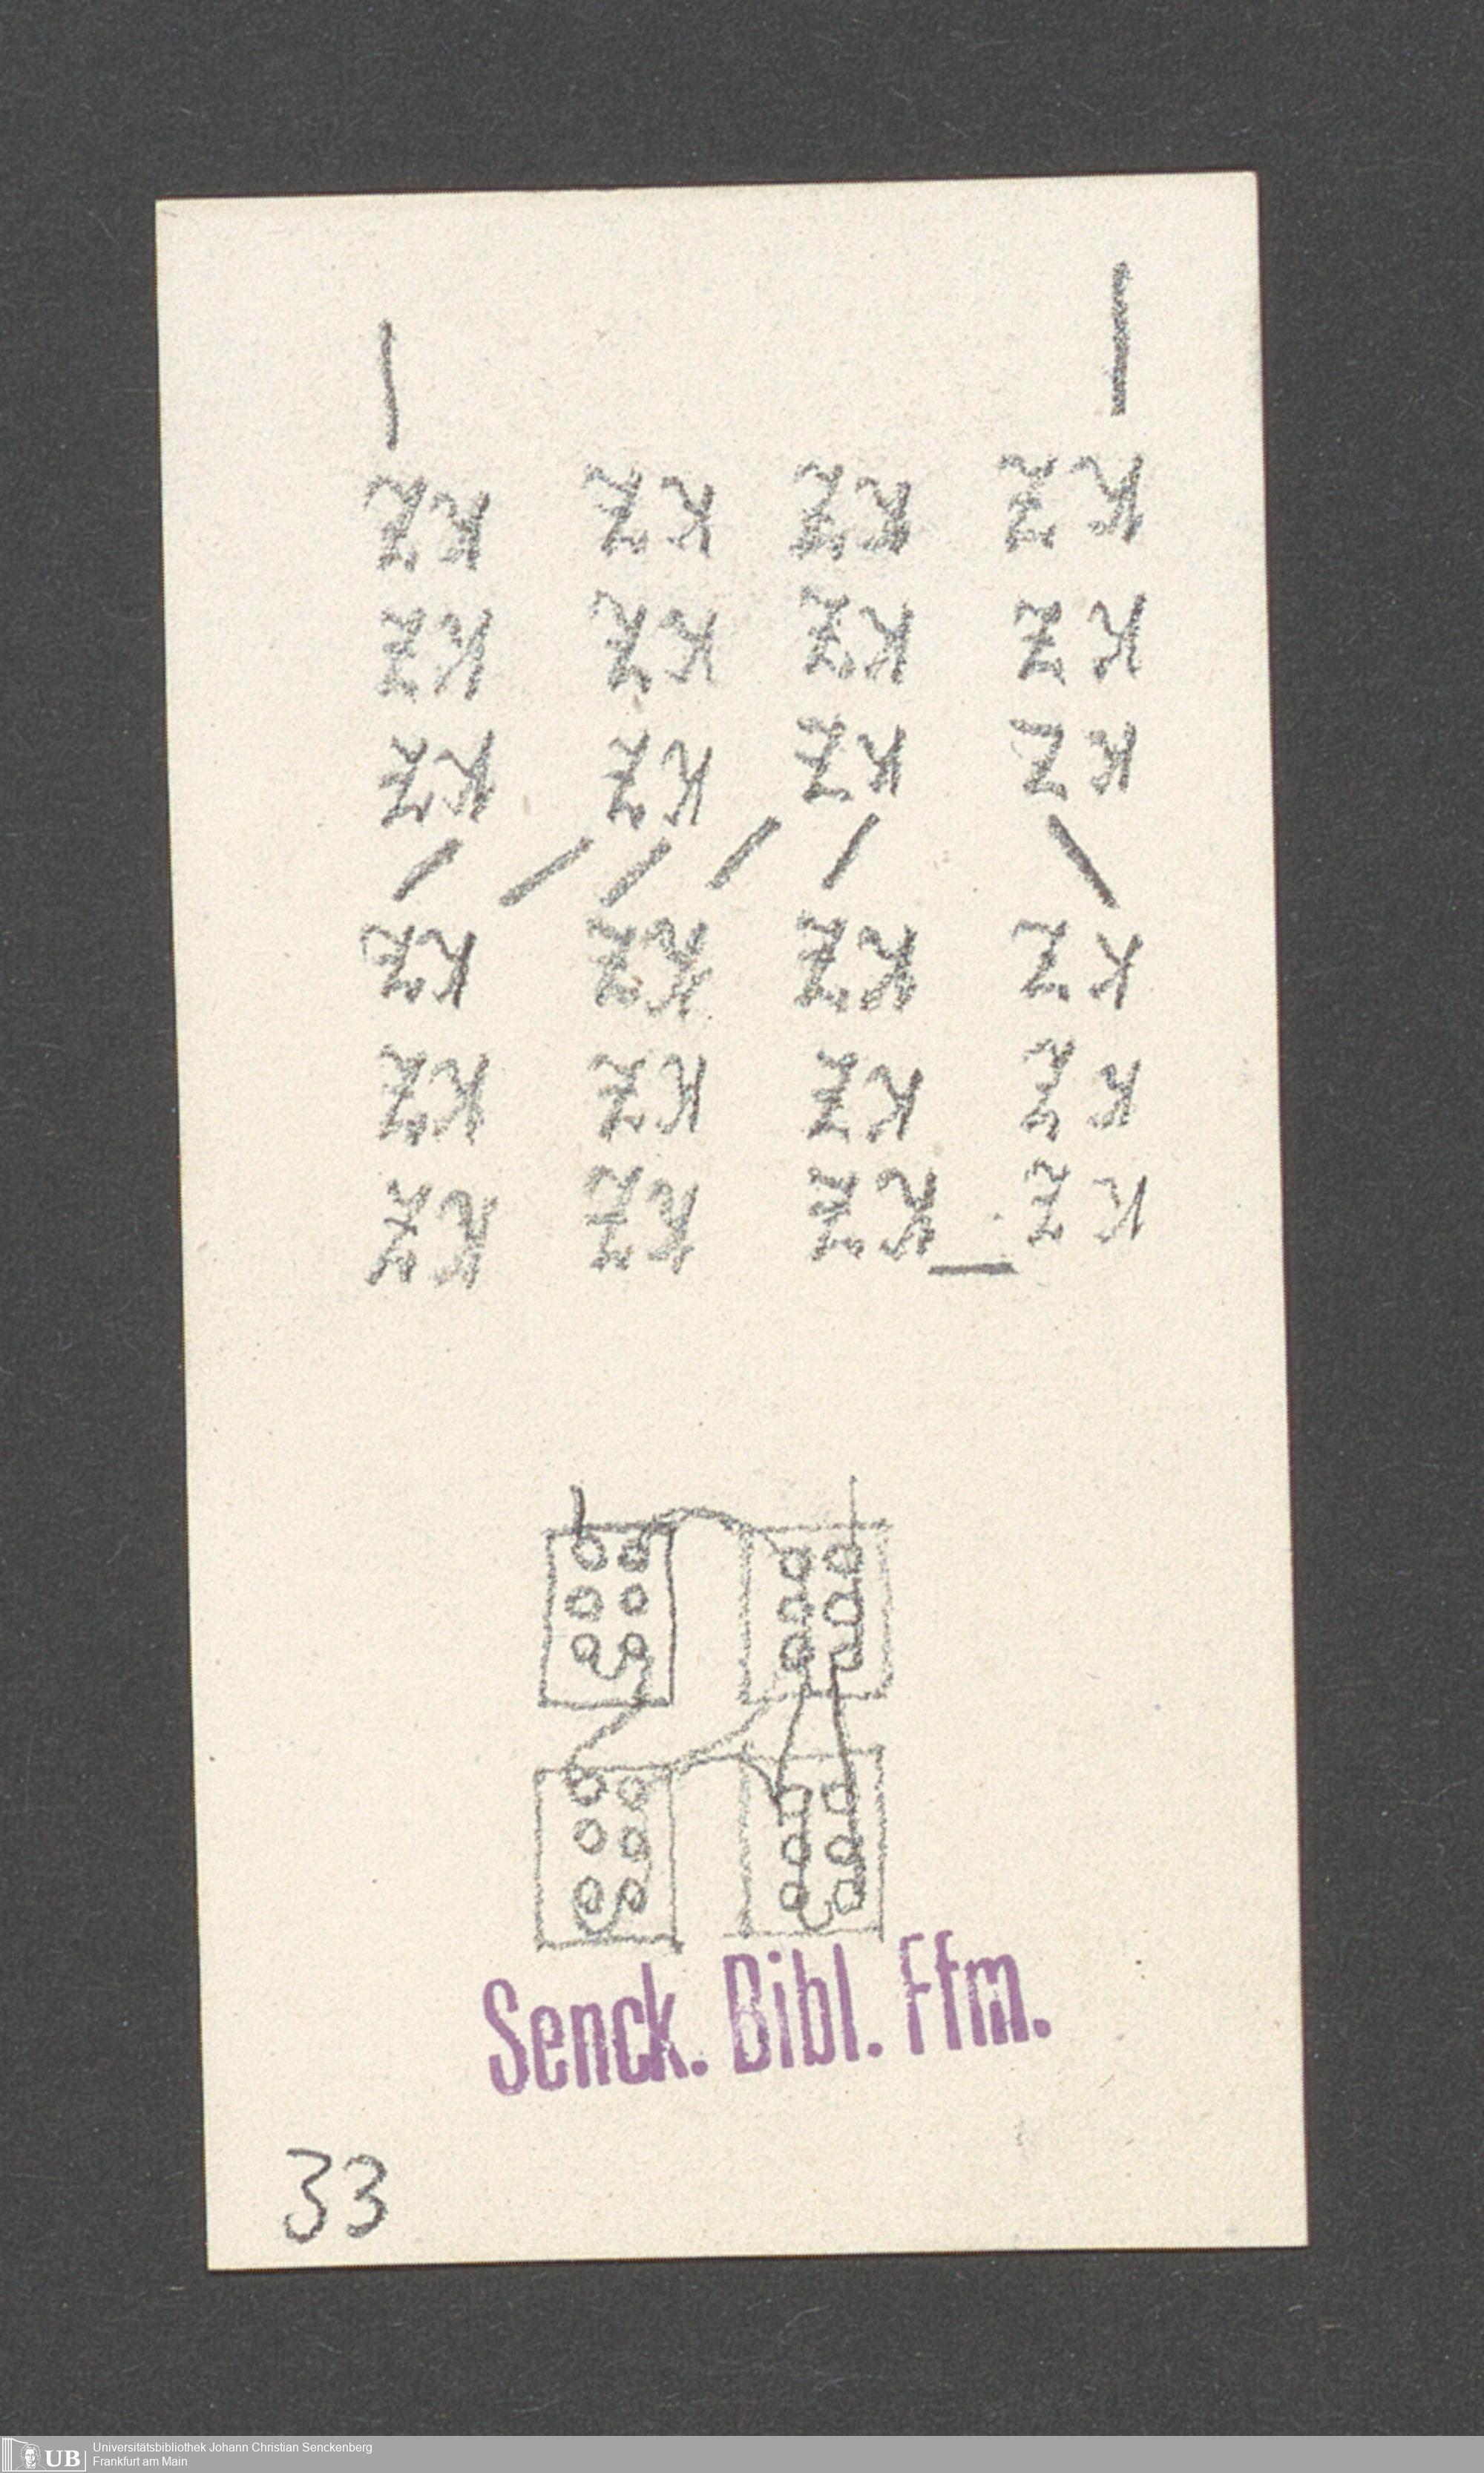 KZ KZ KZ KZ
KZ KZ KZ KZ
KZ KZ KZ KZ
KZ KZ KZ KZ
KZ KZ KZ KZ
KZ KZ KZ KZ
Senck. Bibl. Ffm.
33
UB
Universitätsbibliothek Johann Christian Senckenberg
Frankfurt am Main